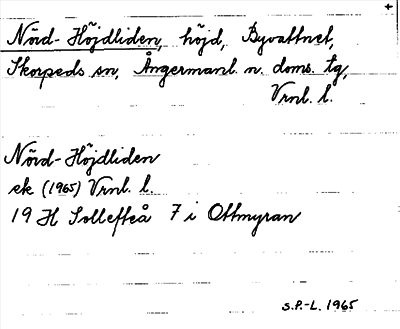 Nörd-Höjdliden, höjd, Byvattnet,
Skorpeds sn, Ångermanl. n. doms. tg,
Vrnl. l.
Nörd-Höjdliden
ek (1965) Vrnl. l.
19 H Sollefteå 7 i Ottmyran
S.P.-L. 1965